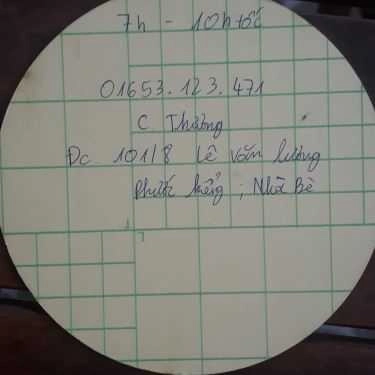 7h - 10h tối
01653.123.471
C. Thương
Đc 101/8 Lê Văn Lương
Phước Kiểng ; Nhà Bè